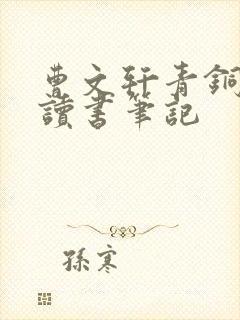 曹文軒青銅
讀書筆記
孫寒